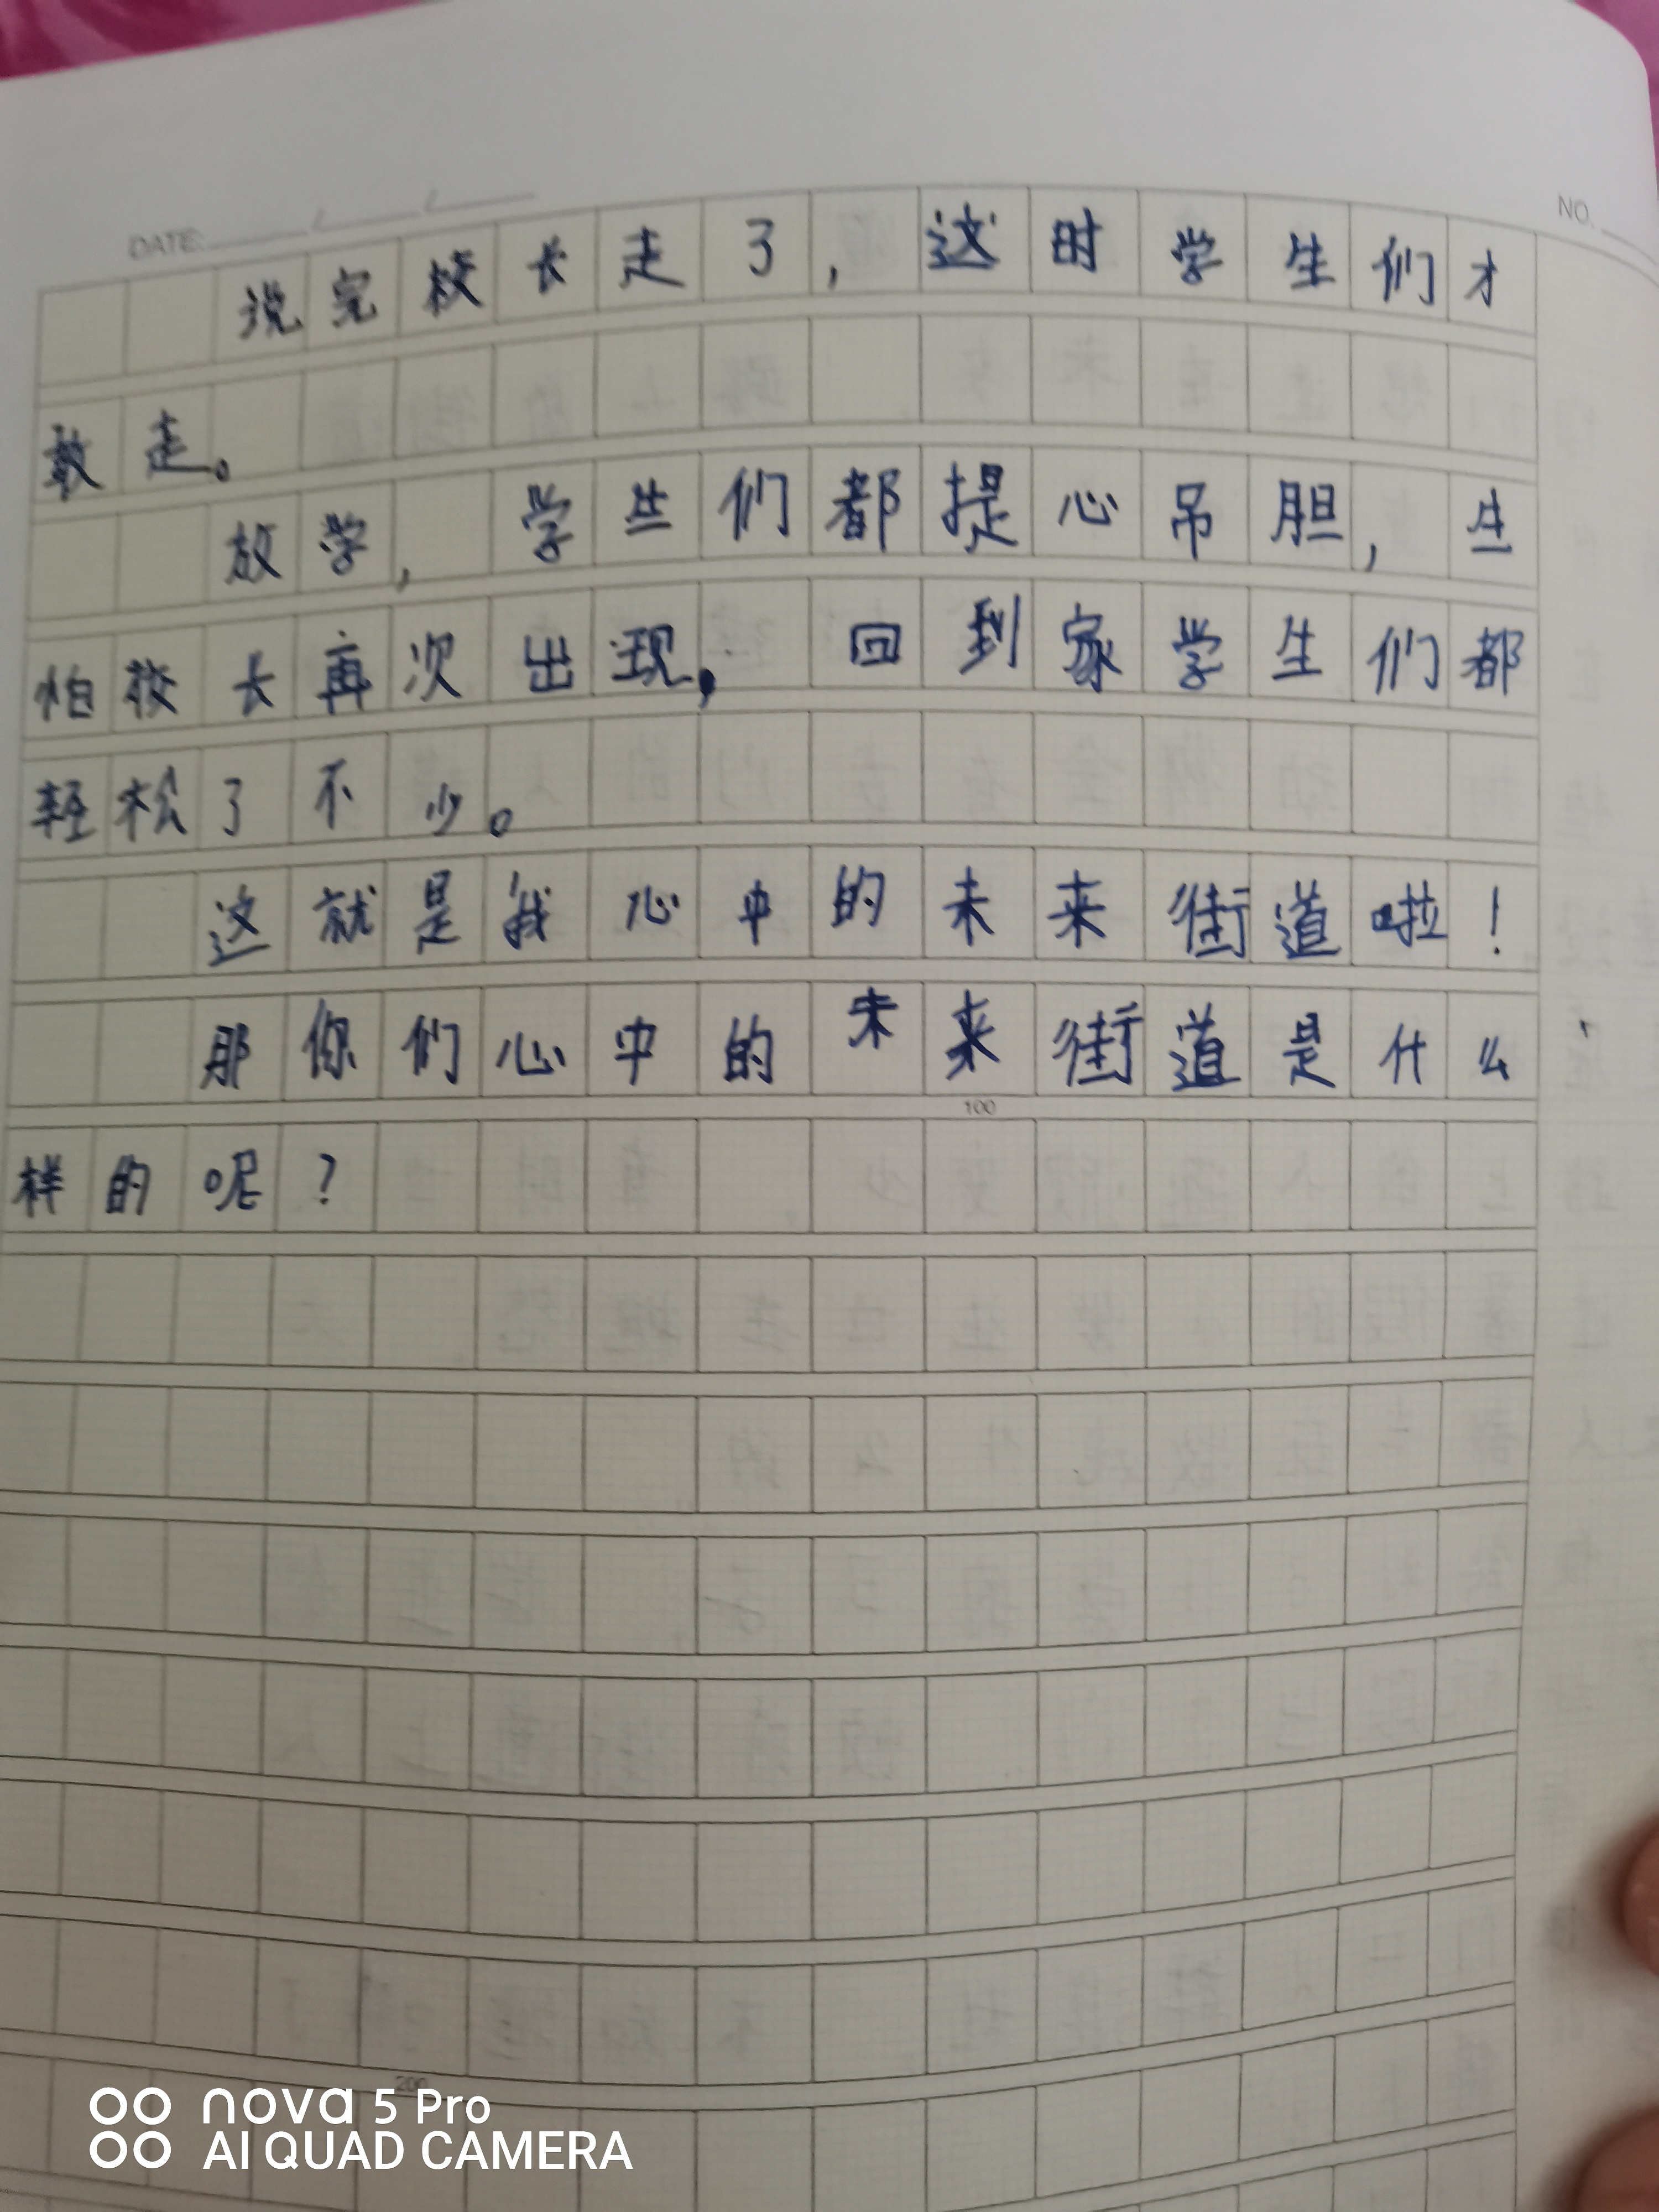 DATE: / / NO.
说完校长走了，这时学生们才
敢走。
放学，学生们都提心吊胆，生
怕校长再次出现，回到家学生们都
轻松了不少。
这就是我心中的未来街道啦！
那你们心中的未来街道是什么
100
样的呢？
200
nova 5 Pro
AI QUAD CAMERA